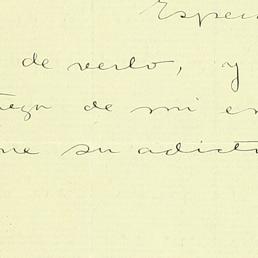 Espe
de verlo, y
de mi en
me su adict